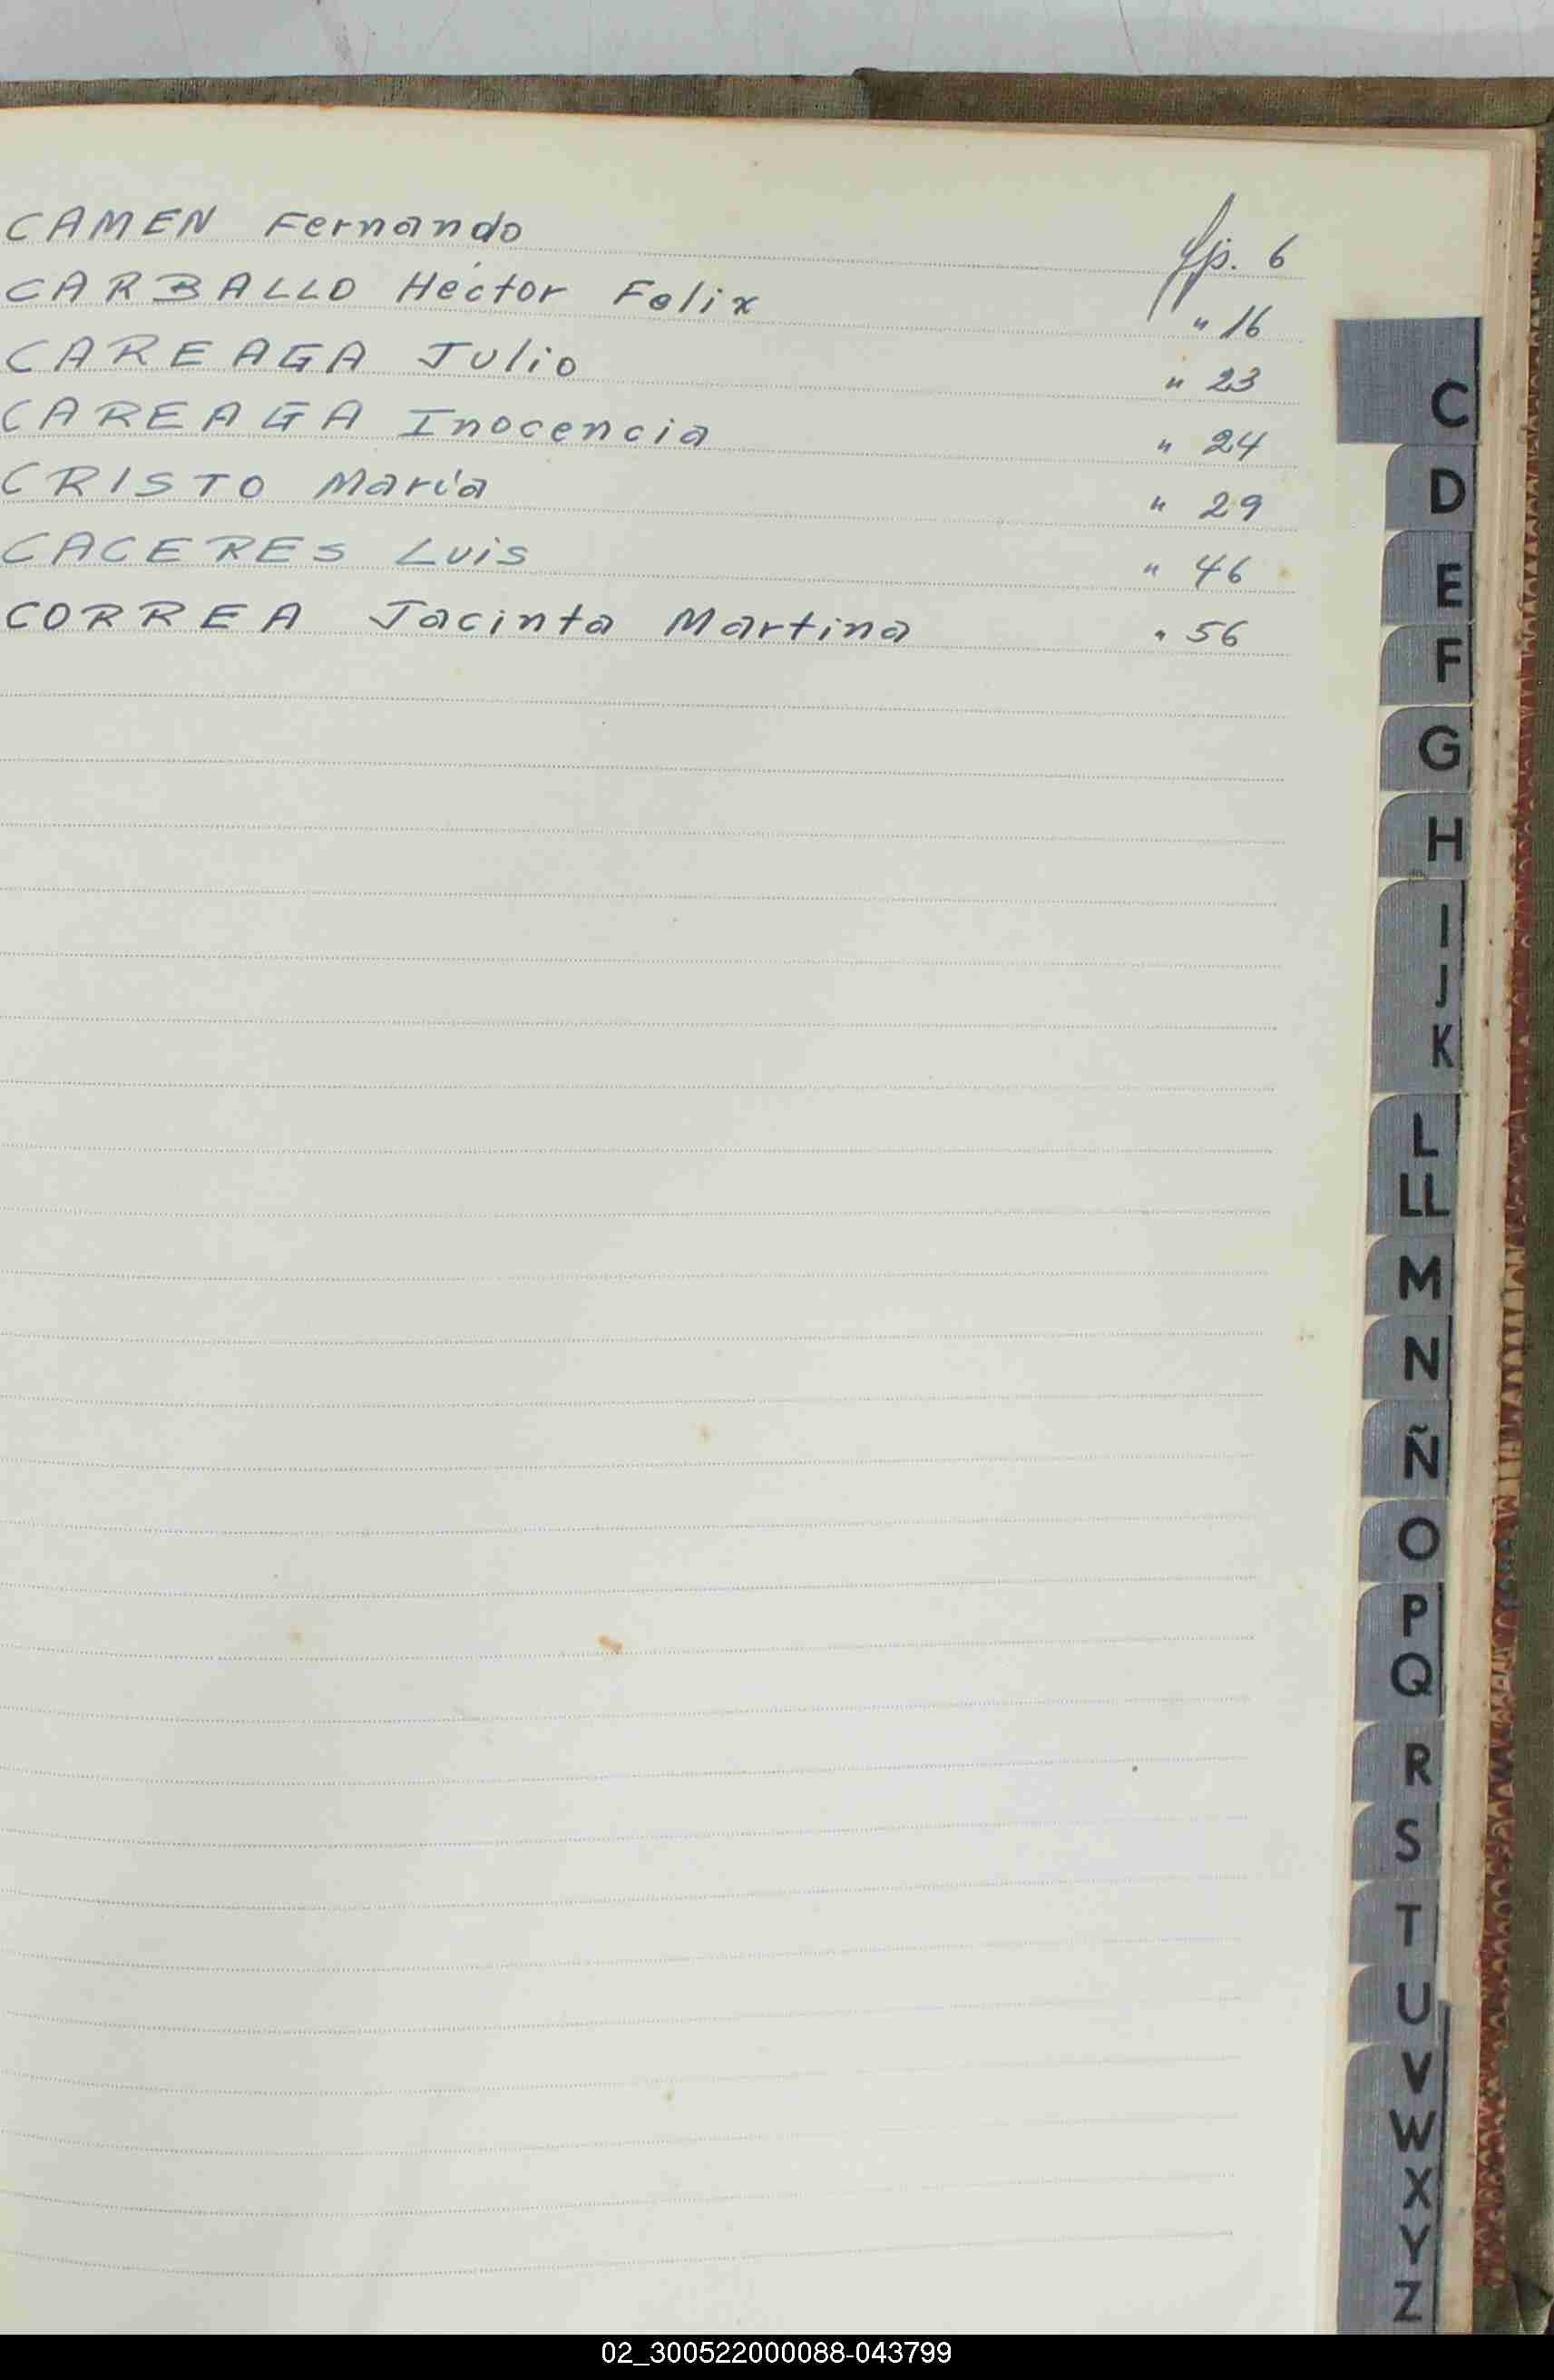 CAMEN Fernando fp. 6
CARBALLO Héctor Felix " 16
CAREAGA Julio " 23
CAREAGA Inocencia " 24
CRISTO María " 29
CACERES Luis " 46
CORREA Jacinta Martina " 56
C
D
E
F
G
H
I
J
K
L
LL
M
N
Ñ
O
P
Q
R
S
T
U
V
W
X
Y
Z
02_300522000088-043799